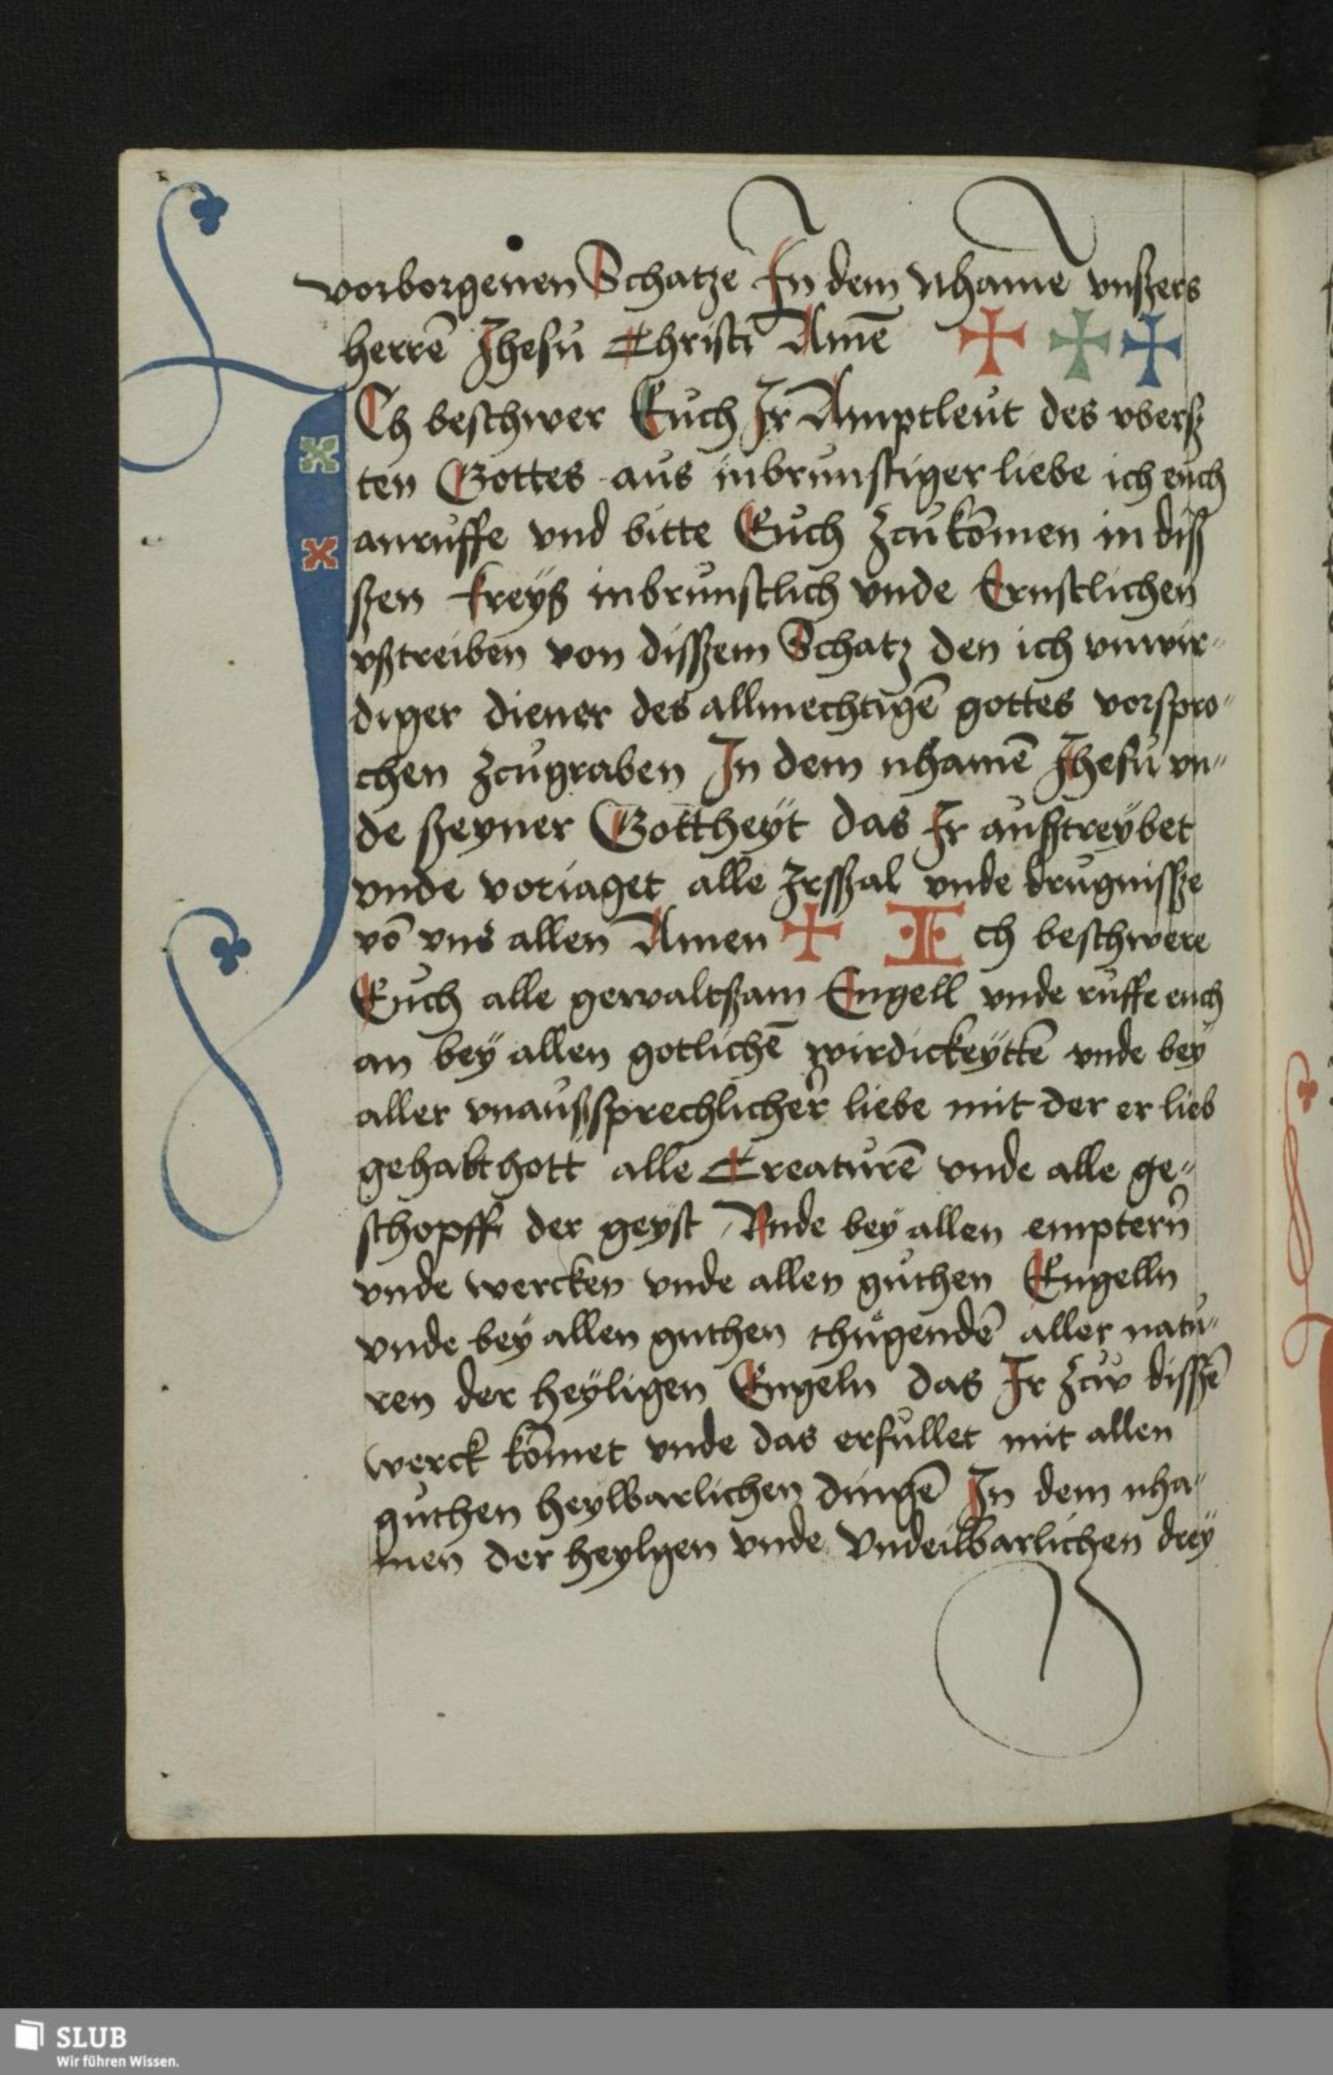 vorborgenen Schatze In dem Nhame vnßers
herrē Jhesu Christi Amē ✠ ✠ ✠
ICh beschwer Euch Ir Amptleut des vberß
ten Gottes aus inbrunstiger liebe ich euch
anruffe vnd bitte Euch zcu komen in diß
ßen kreyß inbrunstlich vnde Ernstlichen
vßtreiben von dißßem Schatz den ich vnwir-
diger diener des allmechtigē gottes vorspro-
chen zcugraben In dem nhamē Jhesu vn-
de ßeyner Gottheyt das Ir außtreybet
vnde voriaget alle Irßsal vnde drugnisße
vō vns allen Amen ✠ Ich beschwere
Euch alle gewaltßam Engell vnde ruffe euch
an bey allen gotlichē wirdickeyttē vnde bey
aller vnaußsprechlicher liebe mit der er lieb
gehabt hott alle Creaturē vnde alle ge-
schopff der geyst Vnde bey allen emptern
vnde wercken vnde allen guthen Engelln
vnde bey allen guthen thugendē aller natu-
ren der heyligen Engeln das Ir zcuv dißßē
werck komet vnde das erfullet mit allen
guthen heylbarlichen dingē In dem nha-
men der heylgen vnde Vndeilbarlichen drey
SLUB
Wir führen Wissen.